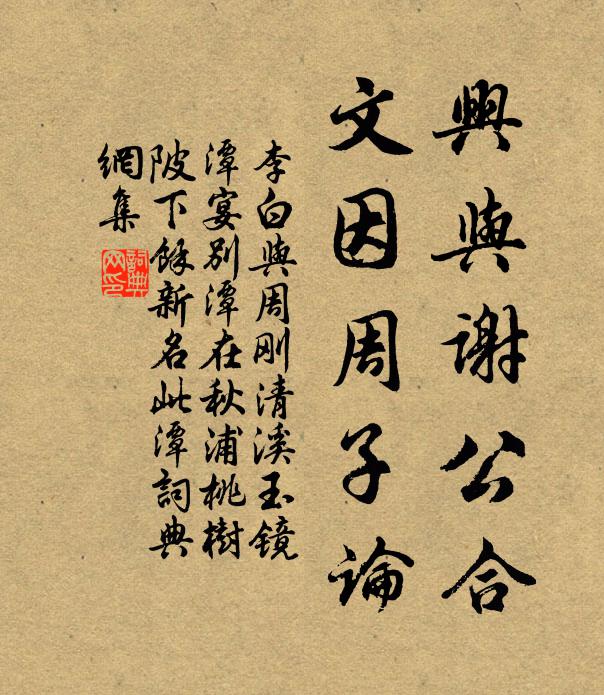 興與謝公合
文因周子論
李白與周刚清溪玉镜
潭宴别潭在秋浦桃樹
陂下餘新名此潭詞典
網集
詞典
网印